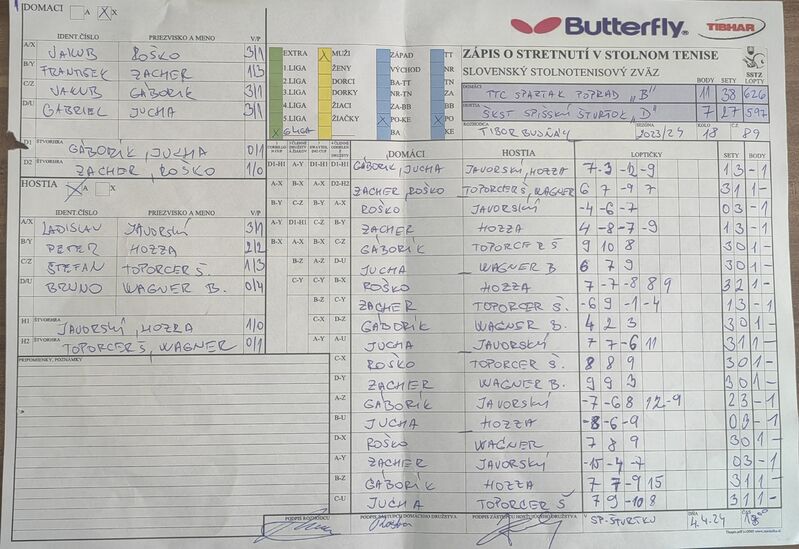 DOMÁCI A X
IDENT.ČÍSLO PRIEZVISKO A MENO V/P
A/X JAKUB ROŠKO 3/1
B/Y FRANTIŠEK ZACHER 1/3
C/Z JAKUB GÁBORÍK 3/1
D/U GABRIEL JUCHA 3/1
D1 ŠTVORHRA GÁBORÍK, JUCHA 0/1
D2 ZACHER, ROŠKO 1/0
HOSTIA A X
IDENT.ČÍSLO PRIEZVISKO A MENO V/P
A/X LADISLAV JAVORSKÝ 3/1
B/Y PETER HOZZA 2/2
C/Z ŠTEFAN TOPORCER Š. 1/3
D/U BRUNO WAGNER B. 0/4
H1 ŠTVORHRA JAVORSKÝ, HOZZA 1/0
H2 ŠTVORHRA TOPORCER Š, WAGNER 0/1
PRIPOMIENKY, POZNÁMKY
EXTRA
1.LIGA
2.LIGA
3.LIGA
4.LIGA
5.LIGA
6.LIGA
MUŽI
ŽENY
DORCI
DORKY
ŽIACI
ŽIAČKY
ZÁPAD
VÝCHOD
BA-TT
NR-TN
ZA-BB
PO-KE
BA
TT
NR
TN
ZA
BB
PO
KE
Butterfly
TIBHAR
ZÁPIS O STRETNUTÍ V STOLNOM TENISE
SLOVENSKÝ STOLNOTENISOVÝ ZVÄZ
SSTZ
BODY SETY LOPTY
DOMÁCI TTC SPARTAK POPRAD „B" 11 38 626
HOSTIA ŠKST SPIŠSKÝ ŠTVRTOK „D" 7 27 597
ROZHODCA TIBOR BUDZÁG SEZÓNA 2023/24 KOLO 18 Č.Z. 89
DOMÁCI HOSTIA LOPTIČKY SETY BODY
D1-H1 A-Y D1-H1 D1-H1 GÁBORÍK, JUCHA JAVORSKÝ, HOZZA 7 -3 -2 -9 1 3 - 1
A-X B-X A-X D2-H2 ZACHER, ROŠKO TOPORCER Š, WAGNER 6 7 -9 7 3 1 1 -
B-Y C-Z B-Y A-X ROŠKO JAVORSKÝ -4 -6 -7 0 3 - 1
C-Z B-Y ZACHER HOZZA 4 -8 -7 -9 1 3 - 1
C-Z GÁBORÍK TOPORCER Š 9 10 8 3 0 1 -
D-U JUCHA WAGNER B 6 7 9 3 0 1 -
B-X ROŠKO HOZZA 7 -7 -8 8 9 3 2 1 -
C-Y ZACHER TOPORCER Š. -6 9 -1 -4 1 3 - 1
C-X D-Z GÁBORÍK WAGNER B. 4 2 3 3 0 1 -
A-Y A-U JUCHA JAVORSKÝ 7 7 -6 11 3 1 1 -
C-X ROŠKO TOPORCER Š. 8 8 9 3 0 1 -
D-Y ZACHER WAGNER B. 9 9 3 3 0 1 -
A-Z GÁBORÍK JAVORSKÝ -7 -6 8 12 -9 2 3 - 1
B-U JUCHA HOZZA -8 -6 -9 0 3 - 1
D-X ROŠKO WAGNER 7 8 9 3 0 1 -
A-Y ZACHER JAVORSKÝ -15 -4 -7 0 3 - 1
B-Z GÁBORÍK HOZZA 7 7 -9 15 3 1 1 -
C-U JUCHA TOPORCER Š 7 9 -10 8 3 1 1 -
PODPIS ROZHODCU PODPIS ZÁSTUPCU DOMÁCEHO DRUŽSTVA PODPIS ZÁSTUPCU HOSŤUJÚCEHO DRUŽSTVA V SP. ŠTVRTKU DŇA 4.4.24 ČAS 18⁰⁰